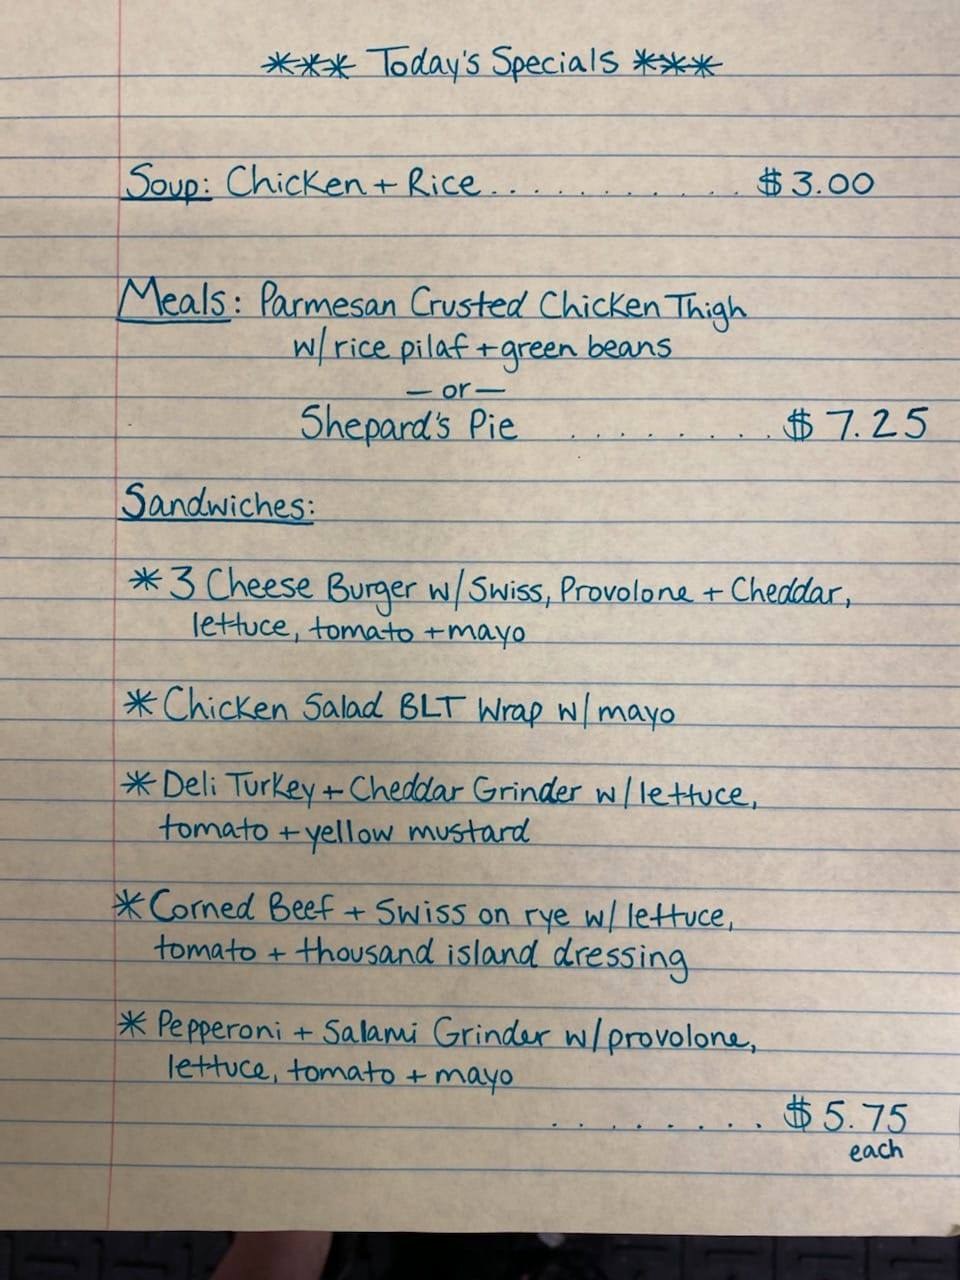 *** Today's Specials ***
Soup: Chicken + Rice . . . . . . . . . . . . $3.00
Meals: Parmesan Crusted Chicken Thigh
w/ rice pilaf + green beans
— or —
Shepard's Pie . . . . . . . . $7.25
Sandwiches:
* 3 Cheese Burger w/ Swiss, Provolone + Cheddar,
lettuce, tomato + mayo
* Chicken Salad BLT Wrap w/ mayo
* Deli Turkey + Cheddar Grinder w/ lettuce,
tomato + yellow mustard
* Corned Beef + Swiss on rye w/ lettuce,
tomato + thousand island dressing
* Pepperoni + Salami Grinder w/ provolone,
lettuce, tomato + mayo
. . . . . . . . $5.75
each